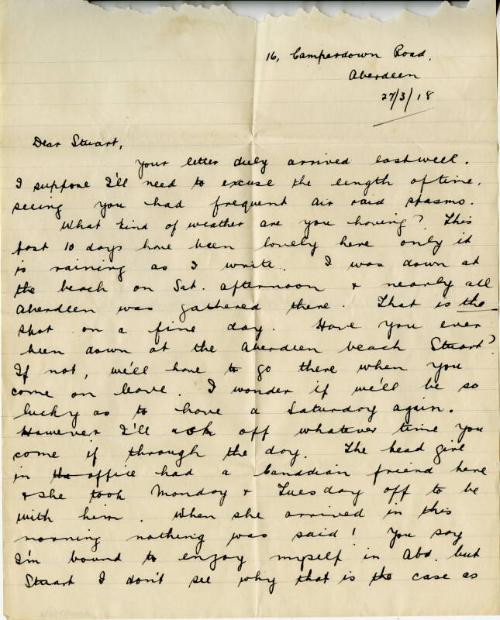 16, Camperdown Road,
Aberdeen
27/3/18
Dear Stuart,
Your letter duly arrived last week.
I suppose I'll need to excuse the length of time,
seeing you had frequent air raid spasms.
What kind of weather are you having? This
past 10 days have been lovely here only it
is raining as I write. I was down at
the beach on Sat. afternoon & nearly all
Aberdeen was gathered there. That is the
spot on a fine day. Have you ever
been down at the Aberdeen beach Stuart?
If not, we'll have to go there when you
come on leave. I wonder if we'll be so
lucky as to have a Saturday again.
However I'll ask off whatever time you
come if through the day. The head girl
in the office had a Canadian friend here
& she took Monday & Tuesday off to be
with him. When she arrived in this
morning nothing was said! You say
I'm bound to enjoy myself in Abd. but
Stuart I don't see why that is the case as